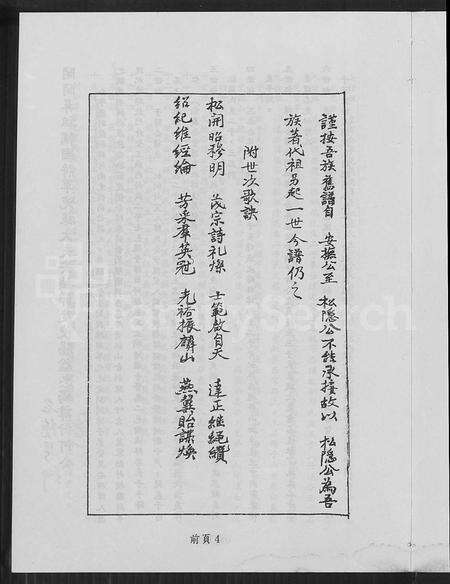 謹按吾族舊譜自 安撫公至 松隱公不能承接故以 松隱公為吾
族著代祖另起一世今譜仍之
附世次歌訣
松開昭穆明 茂宗詩礼燦 士範啟自天 達正継繩纘
紹紀維經綸 芳采羣英冠 光裕振麟山 燕翼貽謀煥
前頁4